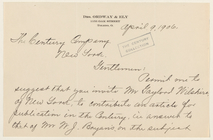 Thos. Ordway & Sly
April 9, 1906.
The Century Company,
New York.
Gentlemen:
Permit me to
suggest that you invite Mr. Gaylord Wilshire
of New York, to contribute an article for
publication in the Century, in answer to
that of Mr. W. J. Bryan's on the subject